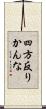 四方反り
かんな